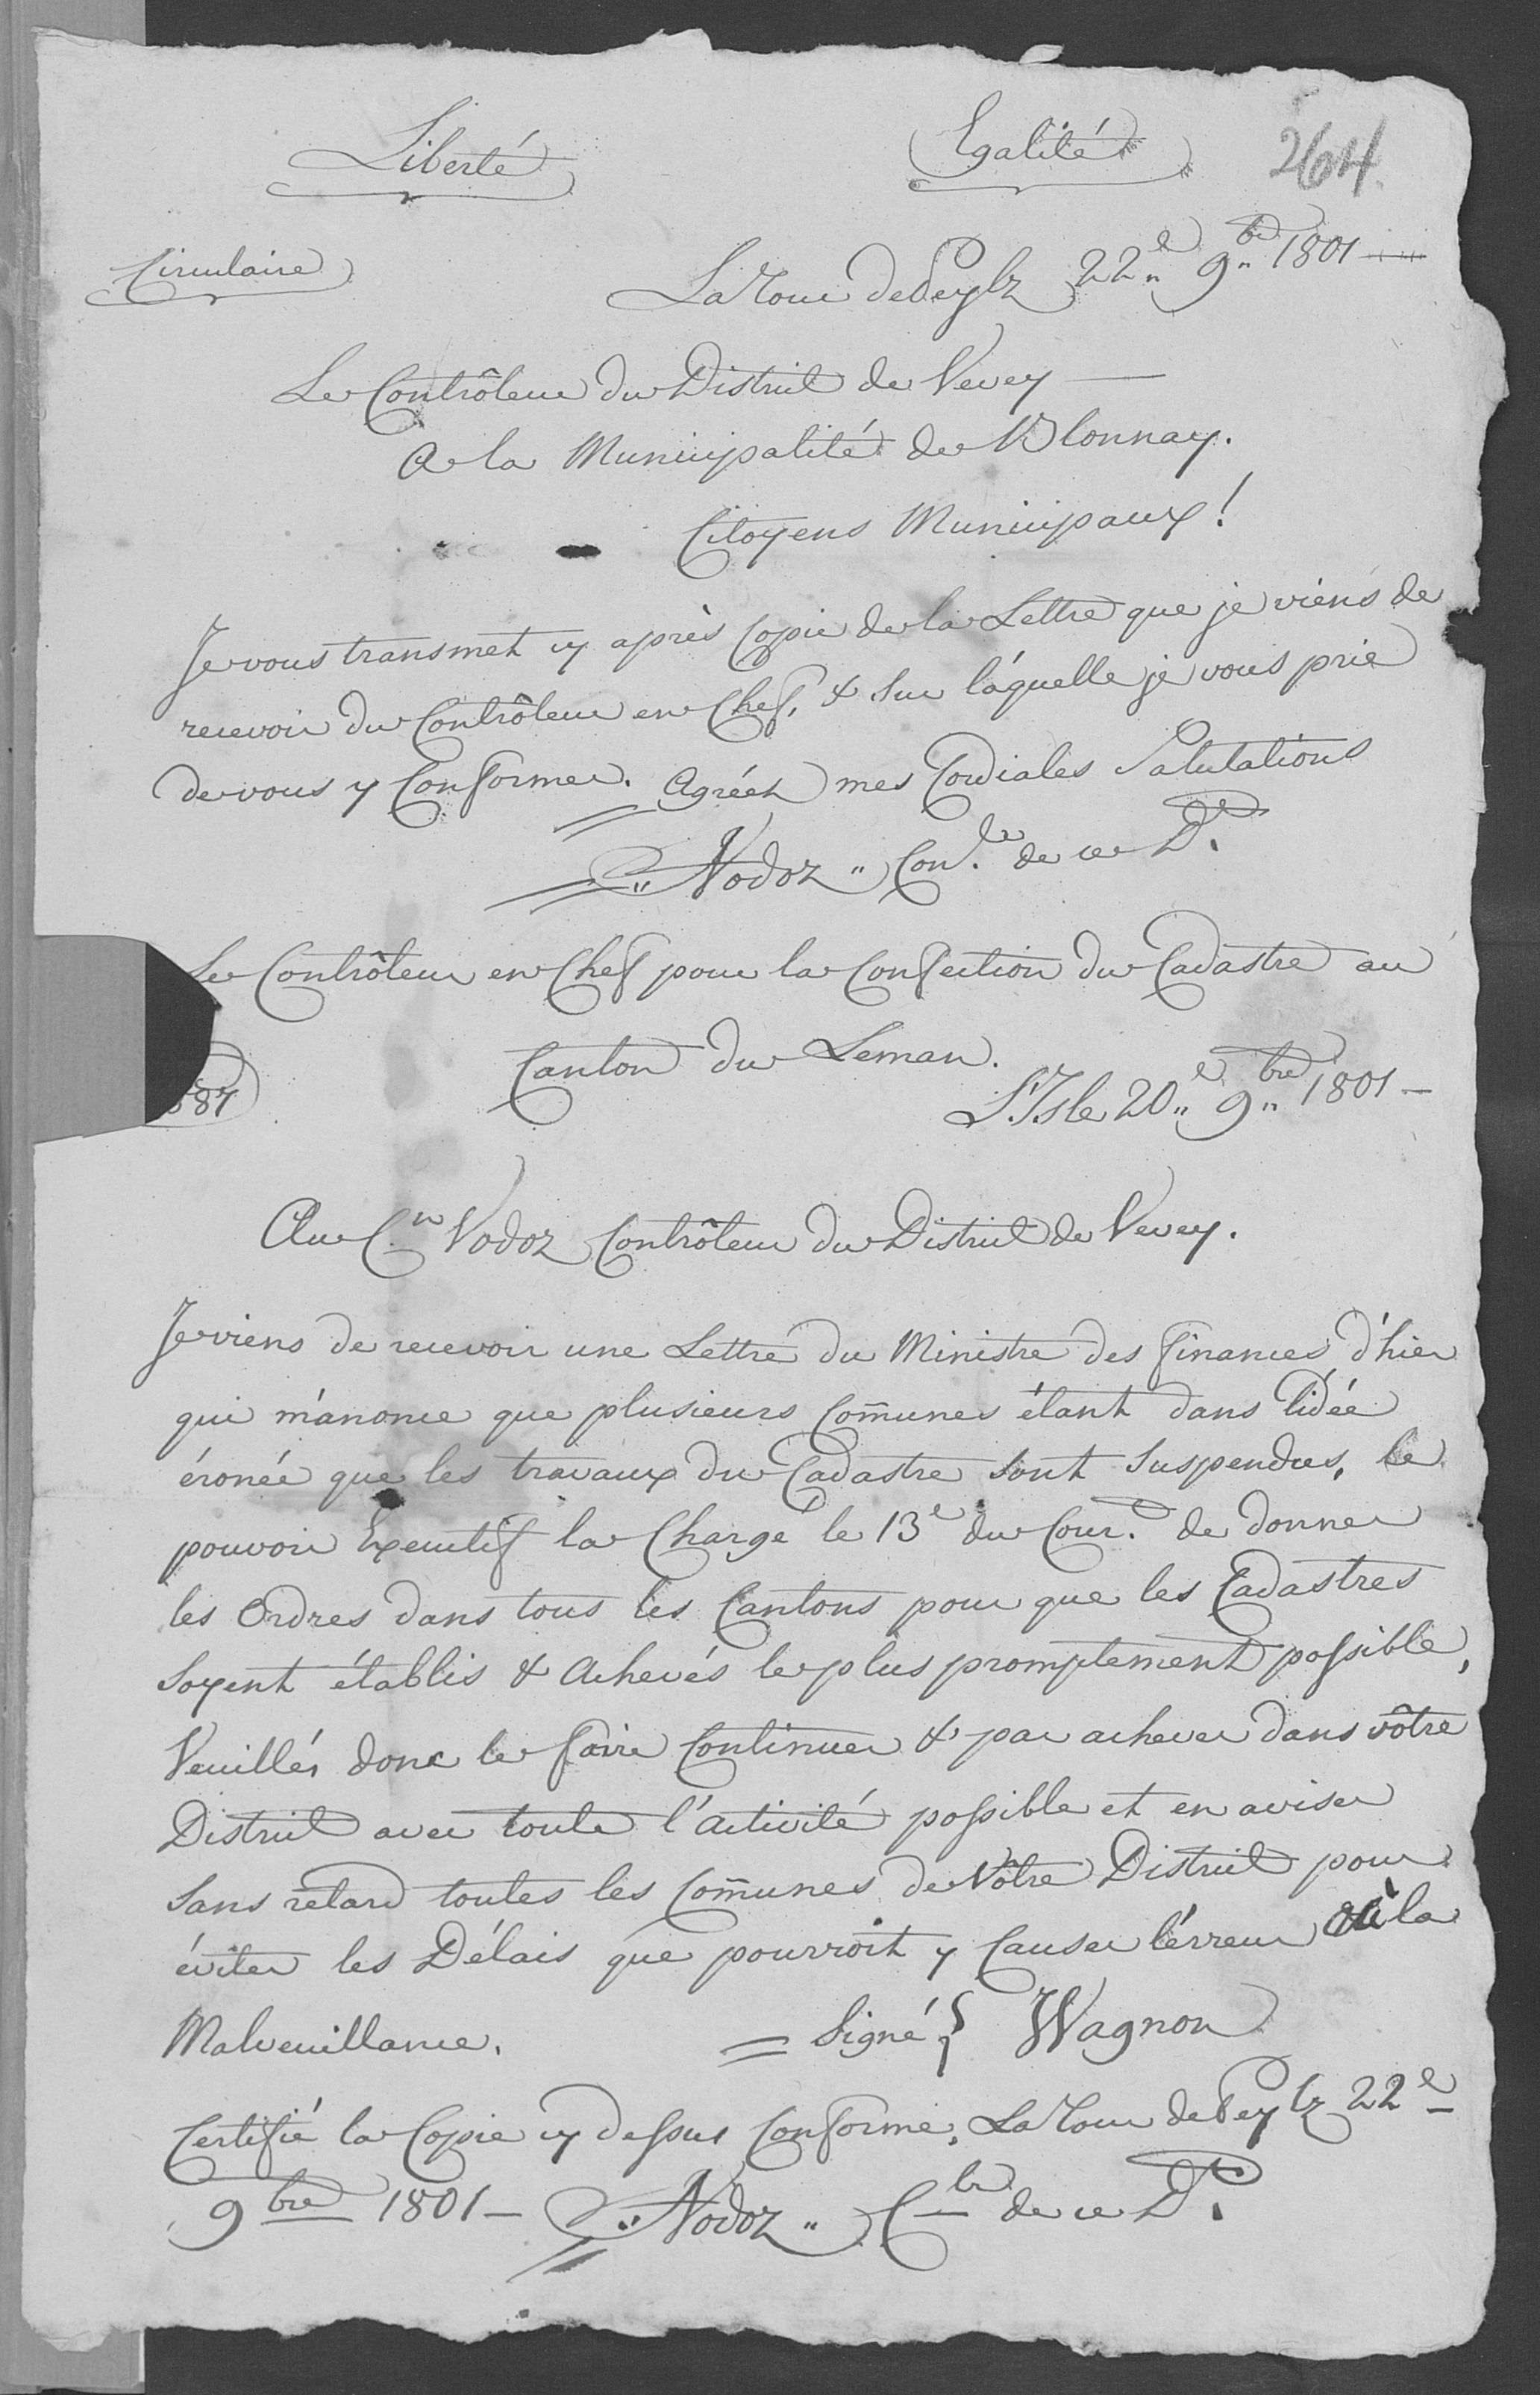 Liberté Egalité 264.
Circulaire
La Tour de Peylz 22e 9bre 1801
Le Contrôleur du District de Vevey —
A la Municipalité de Blonnay.
Citoyens Municipaux !
Je vous transmet cy après Copie de la Lettre que je viens de
recevoir du Contrôleur en Chef, & sur láquelle je vous prie
de vous y Conformer. Agréez mes Cordiales Salutations
Vodoz Con.le de ce D.t
Le Contrôleur en Chef pour la Confection du Cadastre au
Canton du Leman.
L'Isle 20e 9bre 1801 —
Au C.n Vodoz Contrôleur du District de Vevey.
Je viens de recevoir une Lettre du Ministre des finances d'hier
qui m'anonce que plusieurs Com̄unes étant dans lidée
éronée que les travaux du Cadastre sont Suspendus, le
pouvoir Executif la Chargé le 13e du Cour.t de donner
les Ordres dans tous les Cantons pour que les Cadastres
Soyent établis & Achevés le plus promptement possible,
Veuillés donc le faire Continuer & par achever dans vôtre
District avec toute l'Activité possible et en aviser
Sans retard toutes les Com̄unes de Vôtre District pour
éviter les Délais que pourroit y Causer l'érreur où la
Malveuillance. = Signé Wagnon
Certifié la Copie cy dessus Conforme, La Tour de Peylz 22e
9bre 1801 — Vodoz C.le de ce D.t